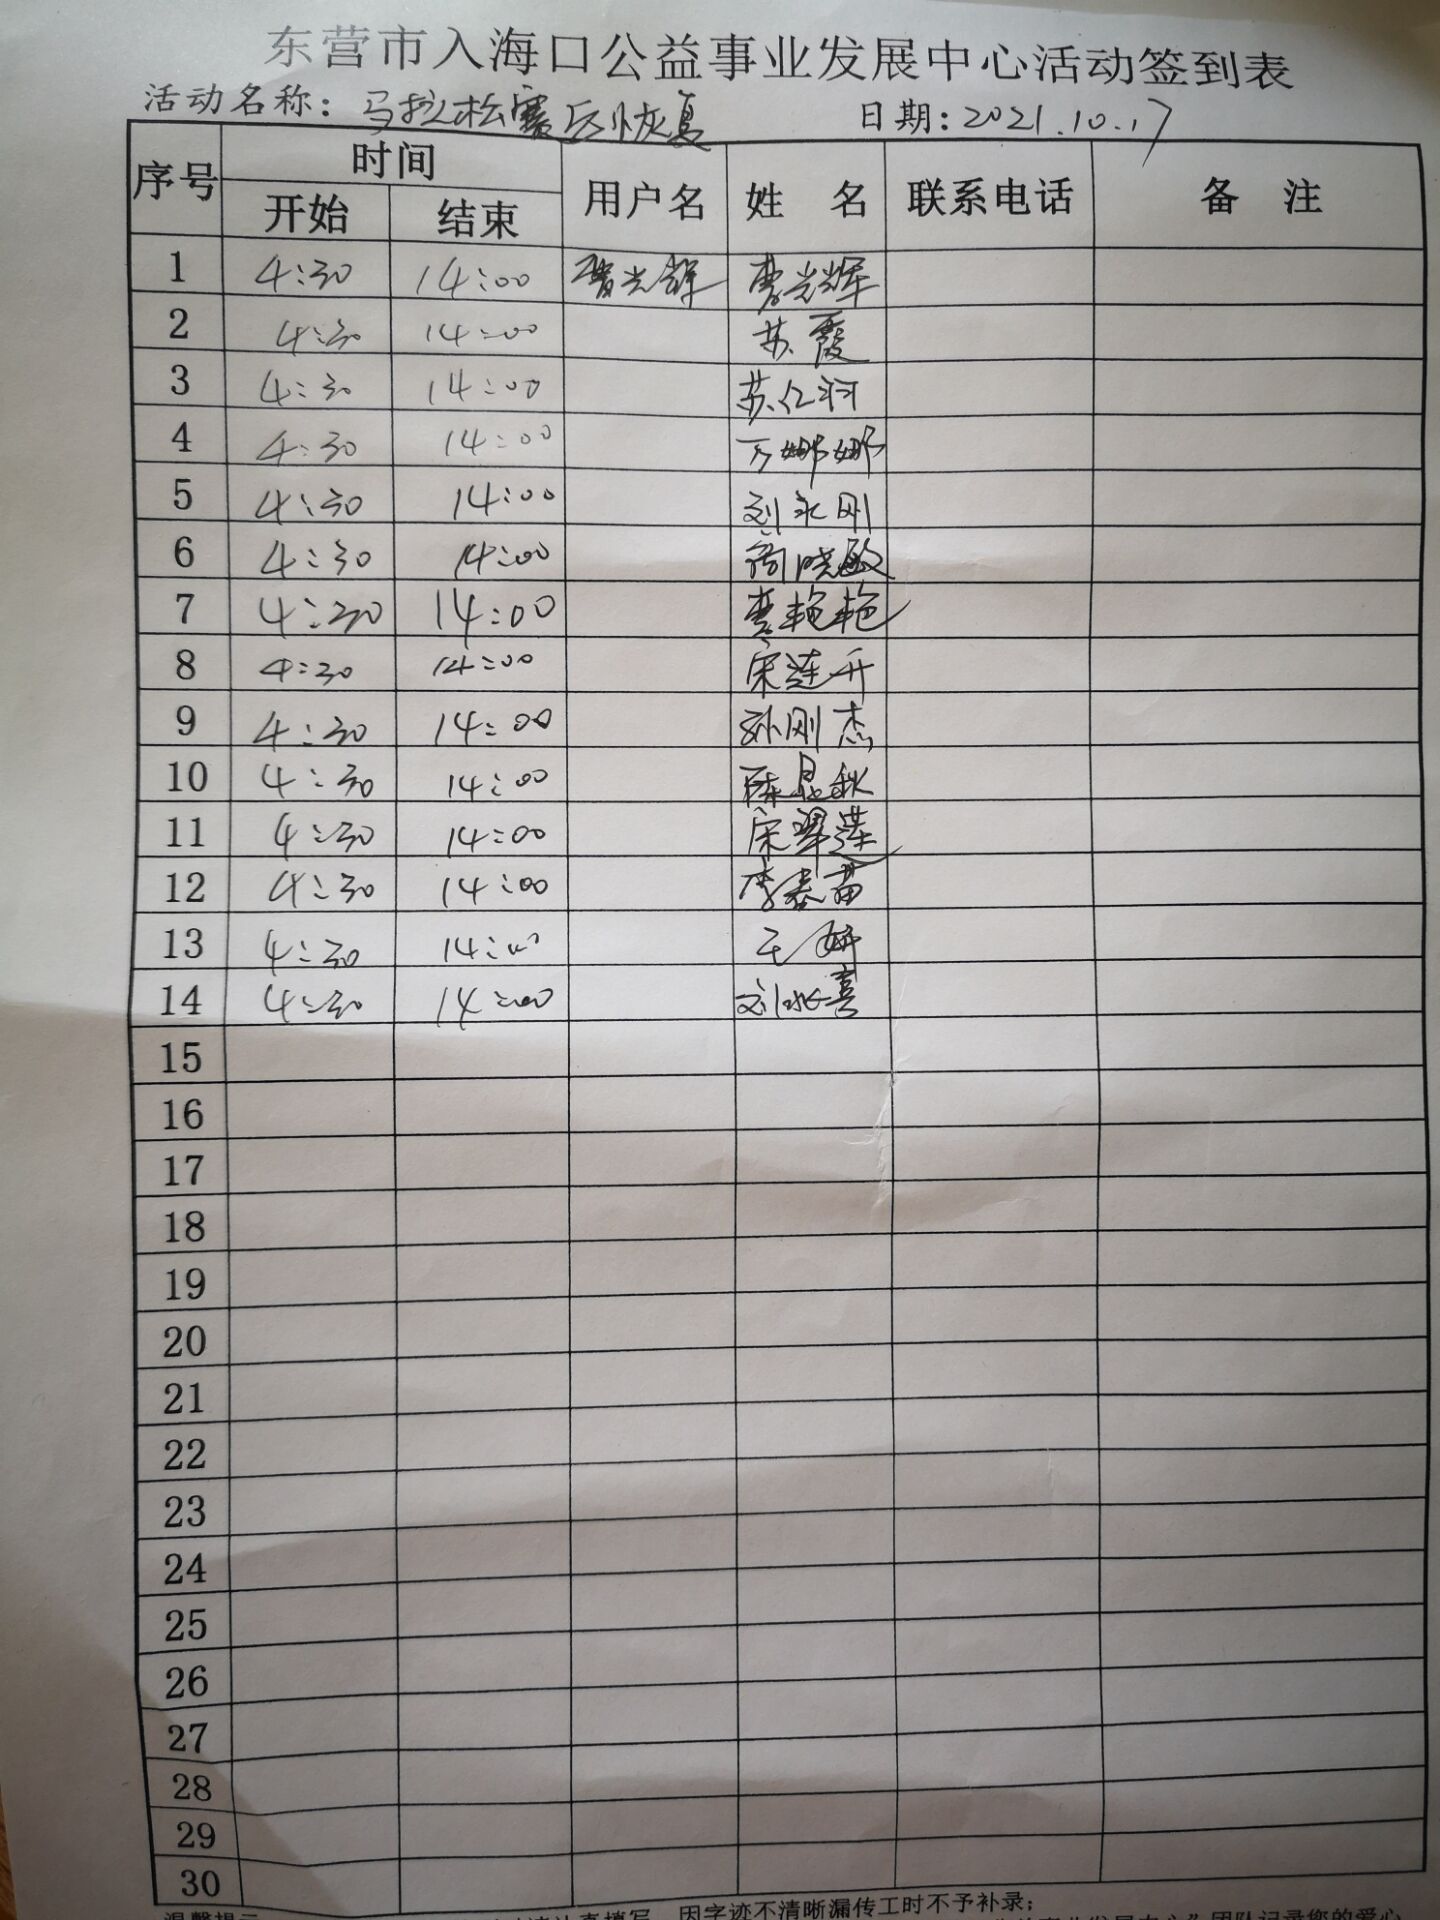 东营市入海口公益事业发展中心活动签到表
活动名称：马拉松赛后恢复 日期：2021.10.17
序号 时间 用户名 姓 名 联系电话 备 注
开始 结束
1 4:30 14:00 曹光辉 曹光辉
2 4:30 14:00 苏霞
3 4:30 14:00 苏仁河
4 4:30 14:00 万娜娜
5 4:30 14:00 刘永刚
6 4:30 14:00 晓敏
7 4:30 14:00 李艳艳
8 4:30 14:00 宋莲升
9 4:30 14:00 孙刚杰
10 4:30 14:00 陈昆秋
11 4:30 14:00 宋翠莲
12 4:30 14:00 李春苗
13 4:30 14:00 王妍
14 4:30 14:00 刘冰喜
15
16
17
18
19
20
21
22
23
24
25
26
27
28
29
30
填写，因字迹不清晰漏传工时不予补录；
温馨提示
团队记录您的爱心